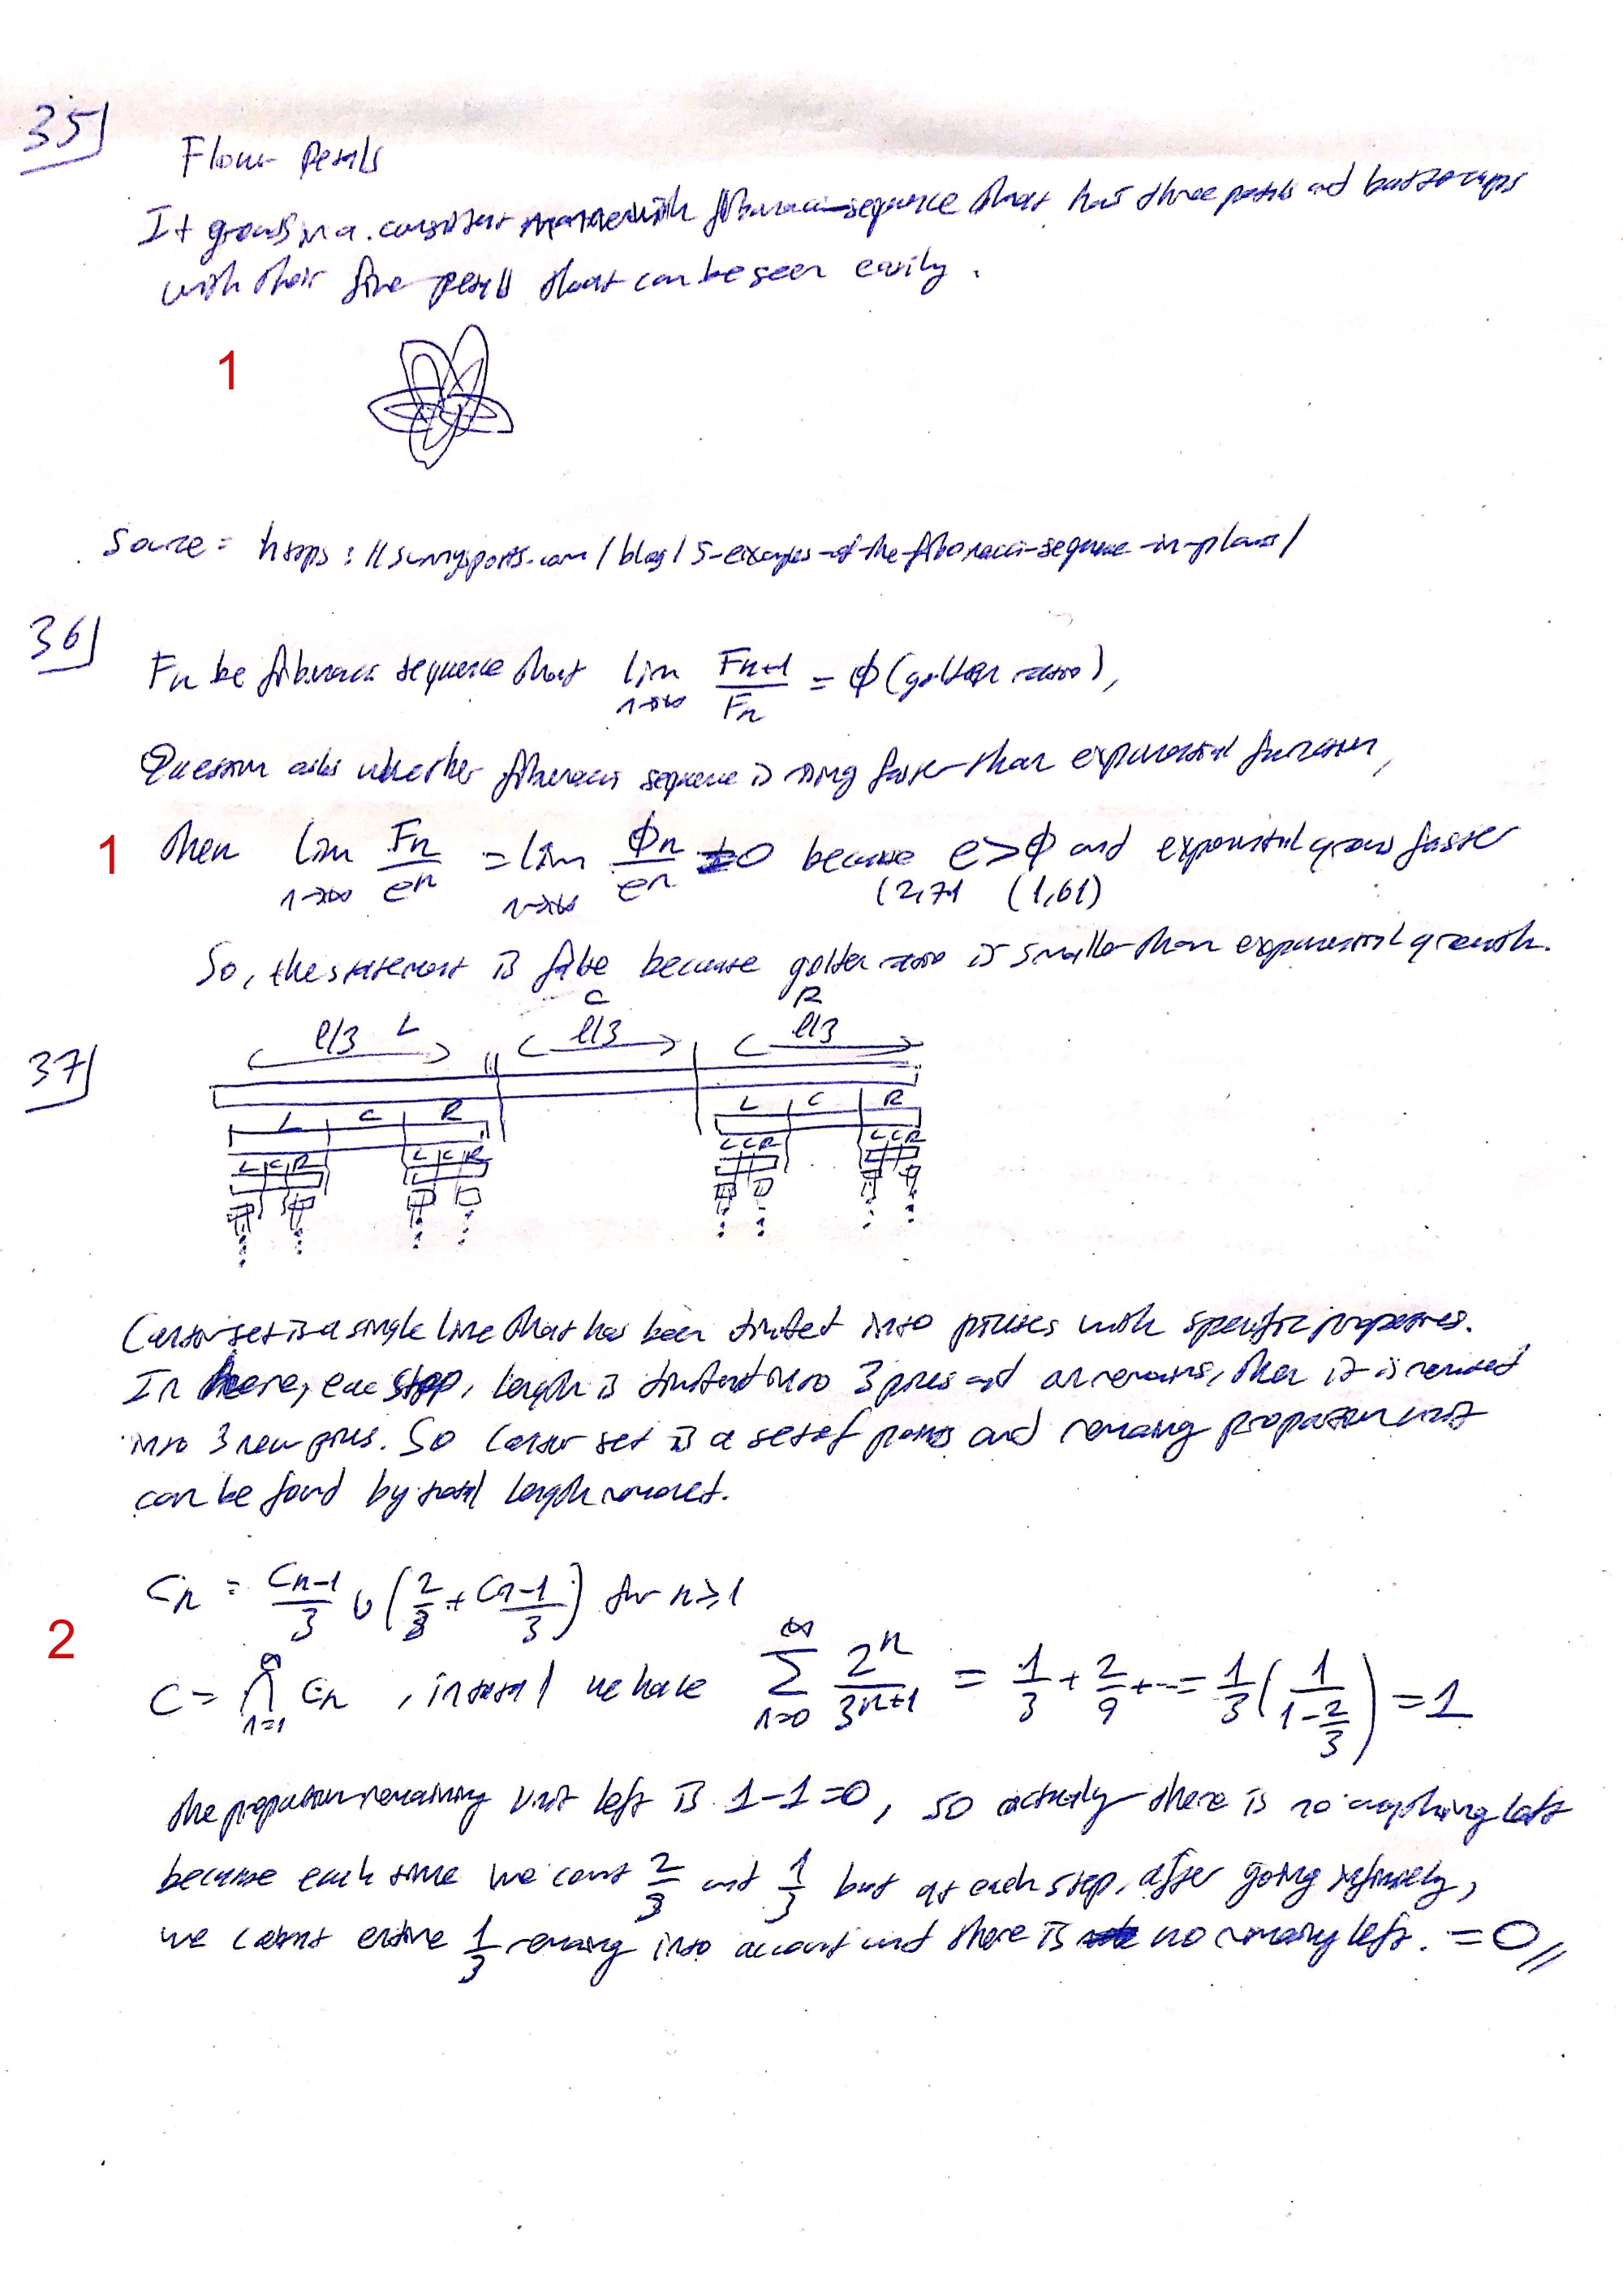 35)
Flower Petals
It grows in a consistent manner with fibonacci-sequence that has three petals and buttercups
with their five petals that can be seen easily.
1
Source = https://sunnysports.com/blog/5-examples-of-the-fibonacci-sequence-in-plants/
36)
Fn be fibonacci sequence that lim n→∞ Fn+1/Fn = φ (golden ratio),
Question asks whether fibonacci sequence is rising faster than exponential function,
1 then lim n→∞ Fn/e^n = lim n→∞ φ^n/e^n = 0 because e > φ and exponential grows faster
(2,71 (1,61)
So, the statement is false because golden ratio is smaller than exponential growth.
C R
l/3 L l/3 l/3
37)
L C R L C R
L C R L C R L C R L C R
Cantor set is a single line that has been divided into pieces with specific properties.
In here, each step, length is divided into 3 pieces and remains, then it is
into 3 new pieces. So Cantor set is a set of points and remaining proportion unit
can be found by total length removed.
Cn = Cn-1/3 ∪ (2/3 + Cn-1/3) for n≥1
2
C = ∩ n=1 ∞ Cn , in total we have ∑ n=0 ∞ 2^n/3^n+1 = 1/3 + 2/9 + ... = 1/3 (1/(1-2/3)) = 1
the proportion remaining unit left is 1-1=0, so actually there is no anything left
because each time we count 2/3 and 1/3 but at each step, after going infinitely,
we count entire 1/3 remaing into account and there is no remaing left. = 0//